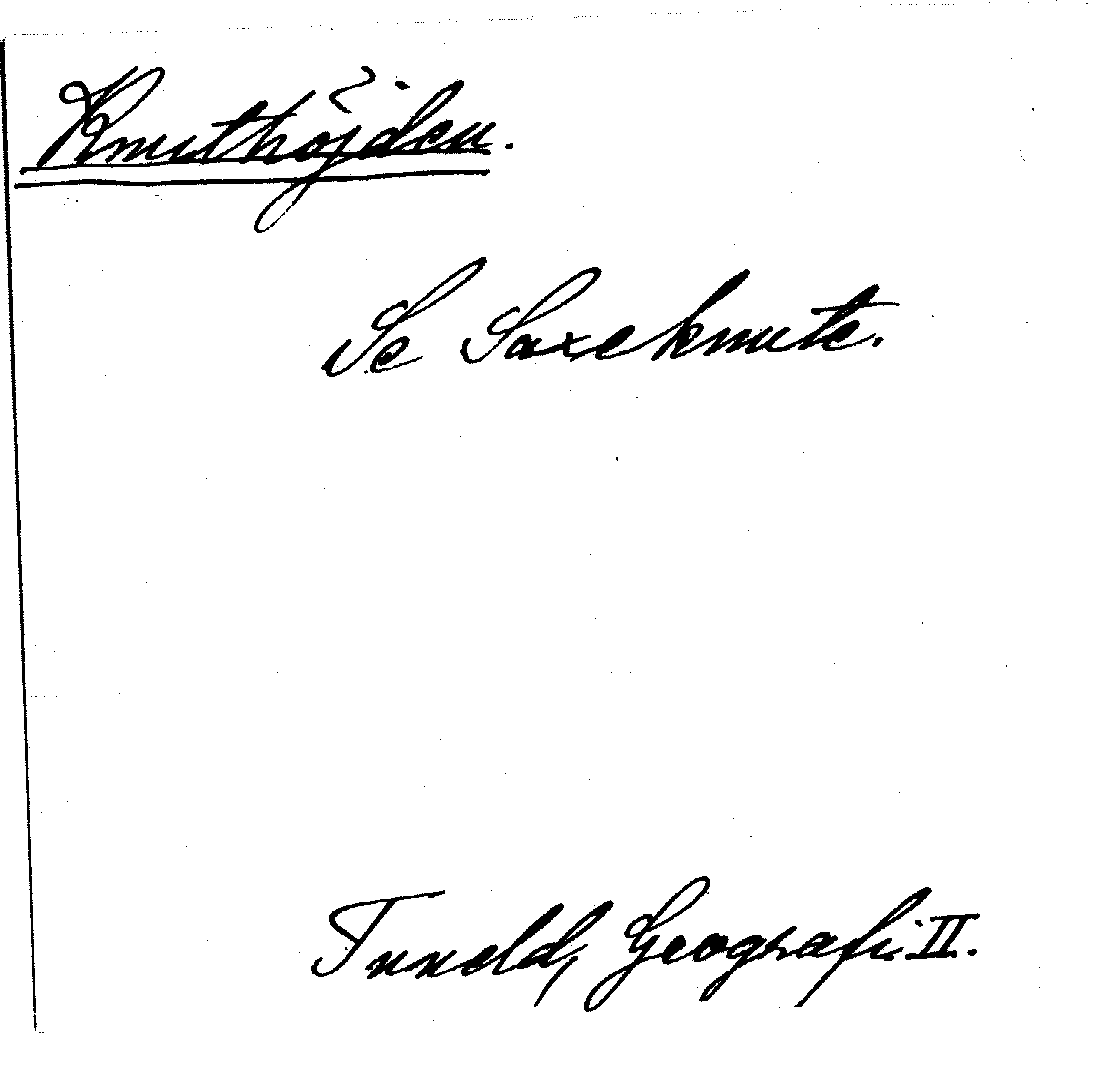 Knuthöjden.
Se Saxeknute.
Tuneld, Geografi II.